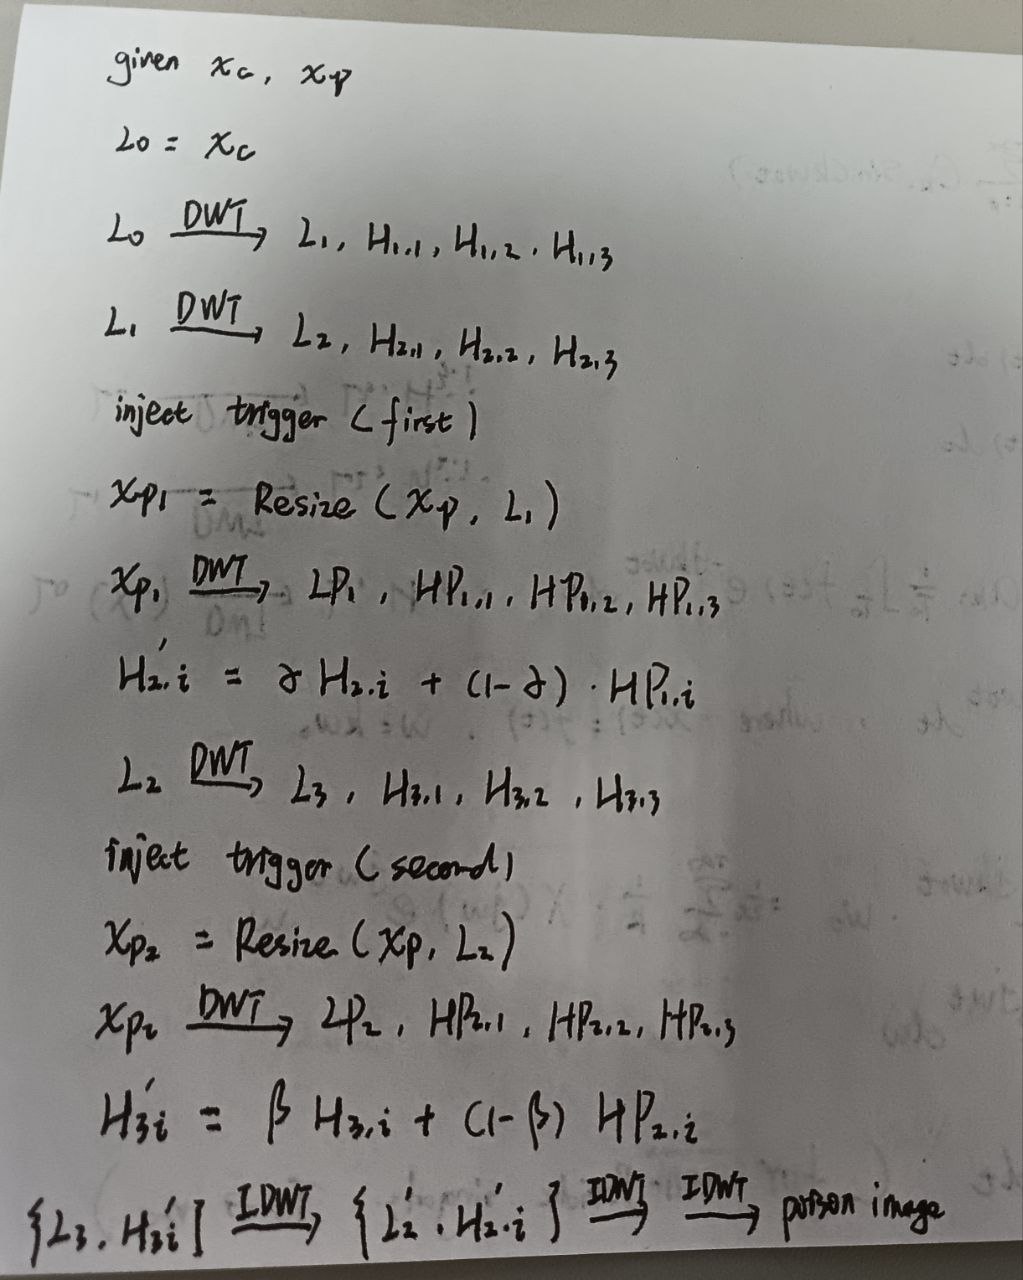 given x_c, x_p
L0 = x_c
L0 DWT→ L1, H1,1, H1,2, H1,3
L1 DWT→ L2, H2,1, H2,2, H2,3
inject trigger (first)
x_p1 = Resize (x_p, L1)
x_p1 DWT→ LP1, HP1,1, HP1,2, HP1,3
H2,i' = α H2,i + (1-α) · HP1,i
L2 DWT→ L3, H3,1, H3,2, H3,3
inject trigger (second)
x_p2 = Resize (x_p, L2)
x_p2 DWT→ LP2, HP2,1, HP2,2, HP2,3
H3i' = β H3,i + (1-β) HP2,i
{L3, H3i'} IDWT→ {L2', H2,i'} IDWT→ IDWT→ poison image